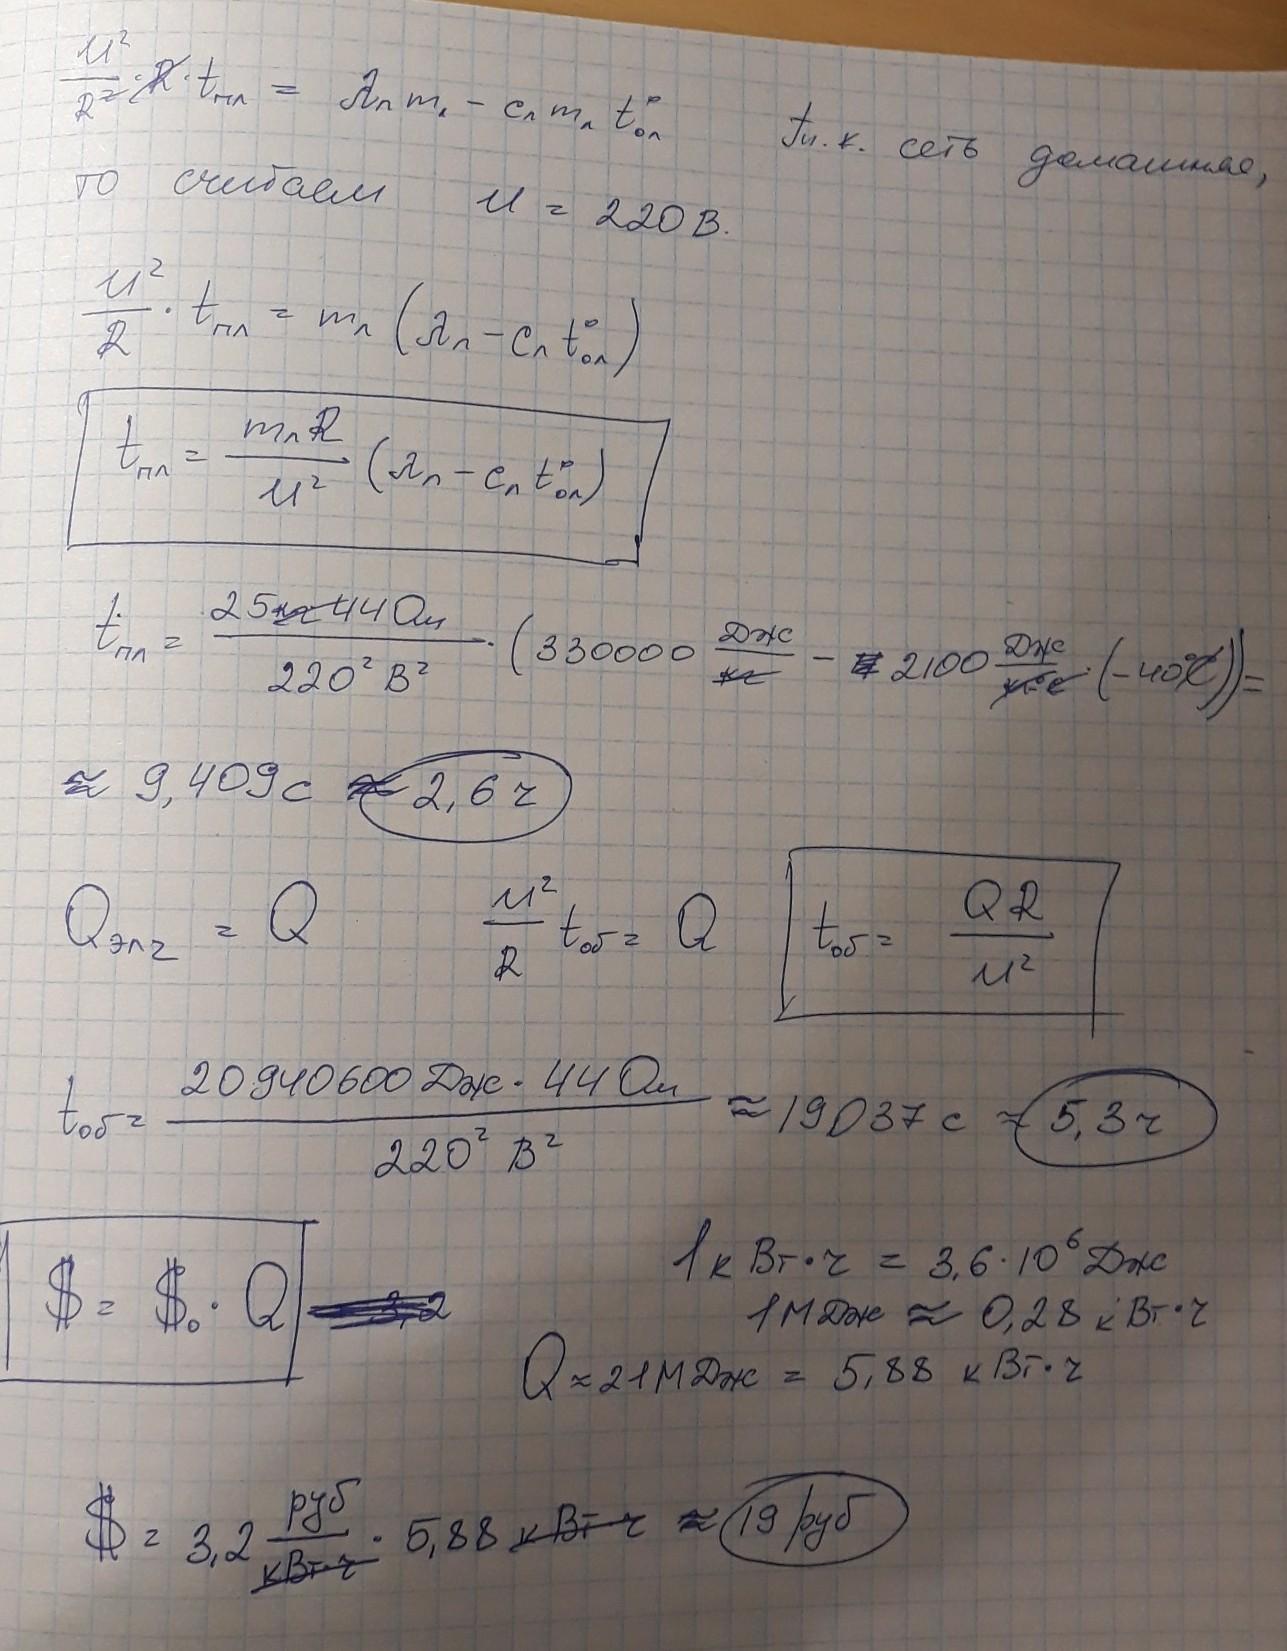 U²/R² · R · tпл = λл mл − cл mл t°ол   Т.к. сеть домашняя,
то считаем U = 220 В.
U²/R · tпл = mл (λл − cл t°ол)
tпл = mл R / U² (λл − cл t°ол)
tпл = 25 кг 44 Ом / 220² В² · (330000 Дж/кг − 2100 Дж/кг°C · (−40°C)) =
≈ 9,409 с ≈ 2,6 ч
Qэлч = Q   U²/R tоб = Q   tоб = QR / U²
tоб = 20940600 Дж · 44 Ом / 220² В² ≈ 19037 с ≈ 5,3 ч
$ = $₀ · Q
1 кВт·ч = 3,6·10⁶ Дж
1 МДж ≈ 0,28 кВт·ч
Q ≈ 21 МДж = 5,88 кВт·ч
$ = 3,2 руб/кВт·ч · 5,88 кВт·ч ≈ 19 руб